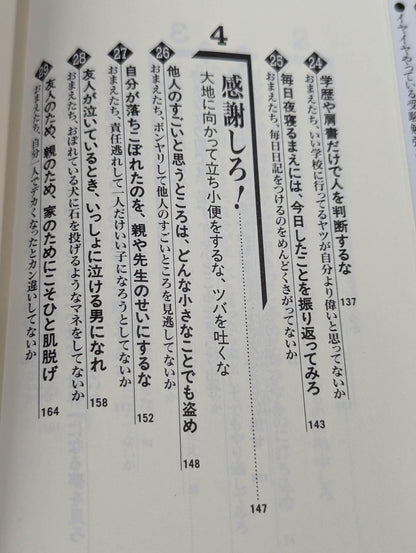 24 学歴や肩書だけで人を判断するな
おまえたち、いい学校に行ってるヤツが自分より偉いと思ってないか 137
25 毎日夜寝るまえには、今日したことを振り返ってみろ
おまえたち、毎日日記をつけるのをめんどくさがってないか 143
4
感謝しろ!
大地に向かって立ち小便をするな、ツバを吐くな 147
26 他人のすごいと思うところは、どんな小さなことでも盗め
おまえたち、ボンヤリして他人のすごいところを見逃してないか 148
27 自分が落ちこぼれたのを、親や先生のせいにするな
おまえたち、責任逃れして一人だけいい子になろうとしてないか 152
28 友人が泣いているとき、いっしょに泣ける男になれ
おまえたち、おぼれている犬に石を投げるようなマネをしてないか 158
29 友人のため、親のため、家のためにこそひと肌脱げ
おまえたち、自分一人でデカくなったとカン違いしてないか 164